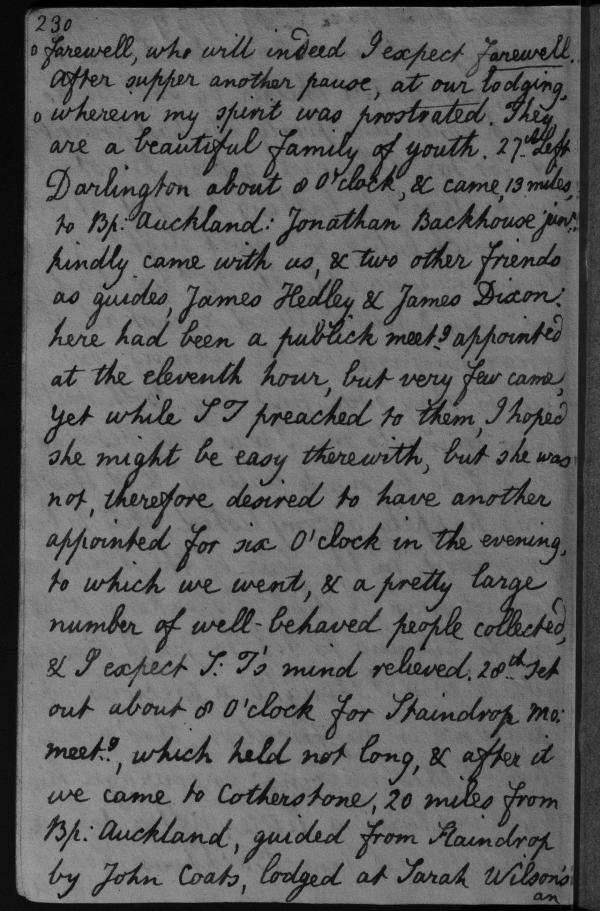 230
farewell, who will indeed I expect farewell.
After supper another pause, at our lodging,
wherein my spirit was prostrated. They
are a beautiful family of youth. 27.th Left
Darlington about 8 O'clock, & came, 13 miles,
to Bp: Auckland: Jonathan Backhouse junr.
kindly came with us, & two other friends
as guides, James Hedley & James Dixon:
here had been a publick meetg appointed
at the eleventh hour, but very few came,
yet while S T preached to them, I hoped
she might be easy therewith, but she was
not, therefore desired to have another
appointed for six O'clock in the evening,
to which we went, & a pretty large
number of well-behaved people collected,
& I expect S: T's mind relieved. 28.th Set
out about 8 O'clock for Staindrop mo:
meetg, which held not long, & after it
we came to Cotherstone, 20 miles from
Bp: Auckland, guided from Staindrop
by John Coats, lodged at Sarah Wilson's
an